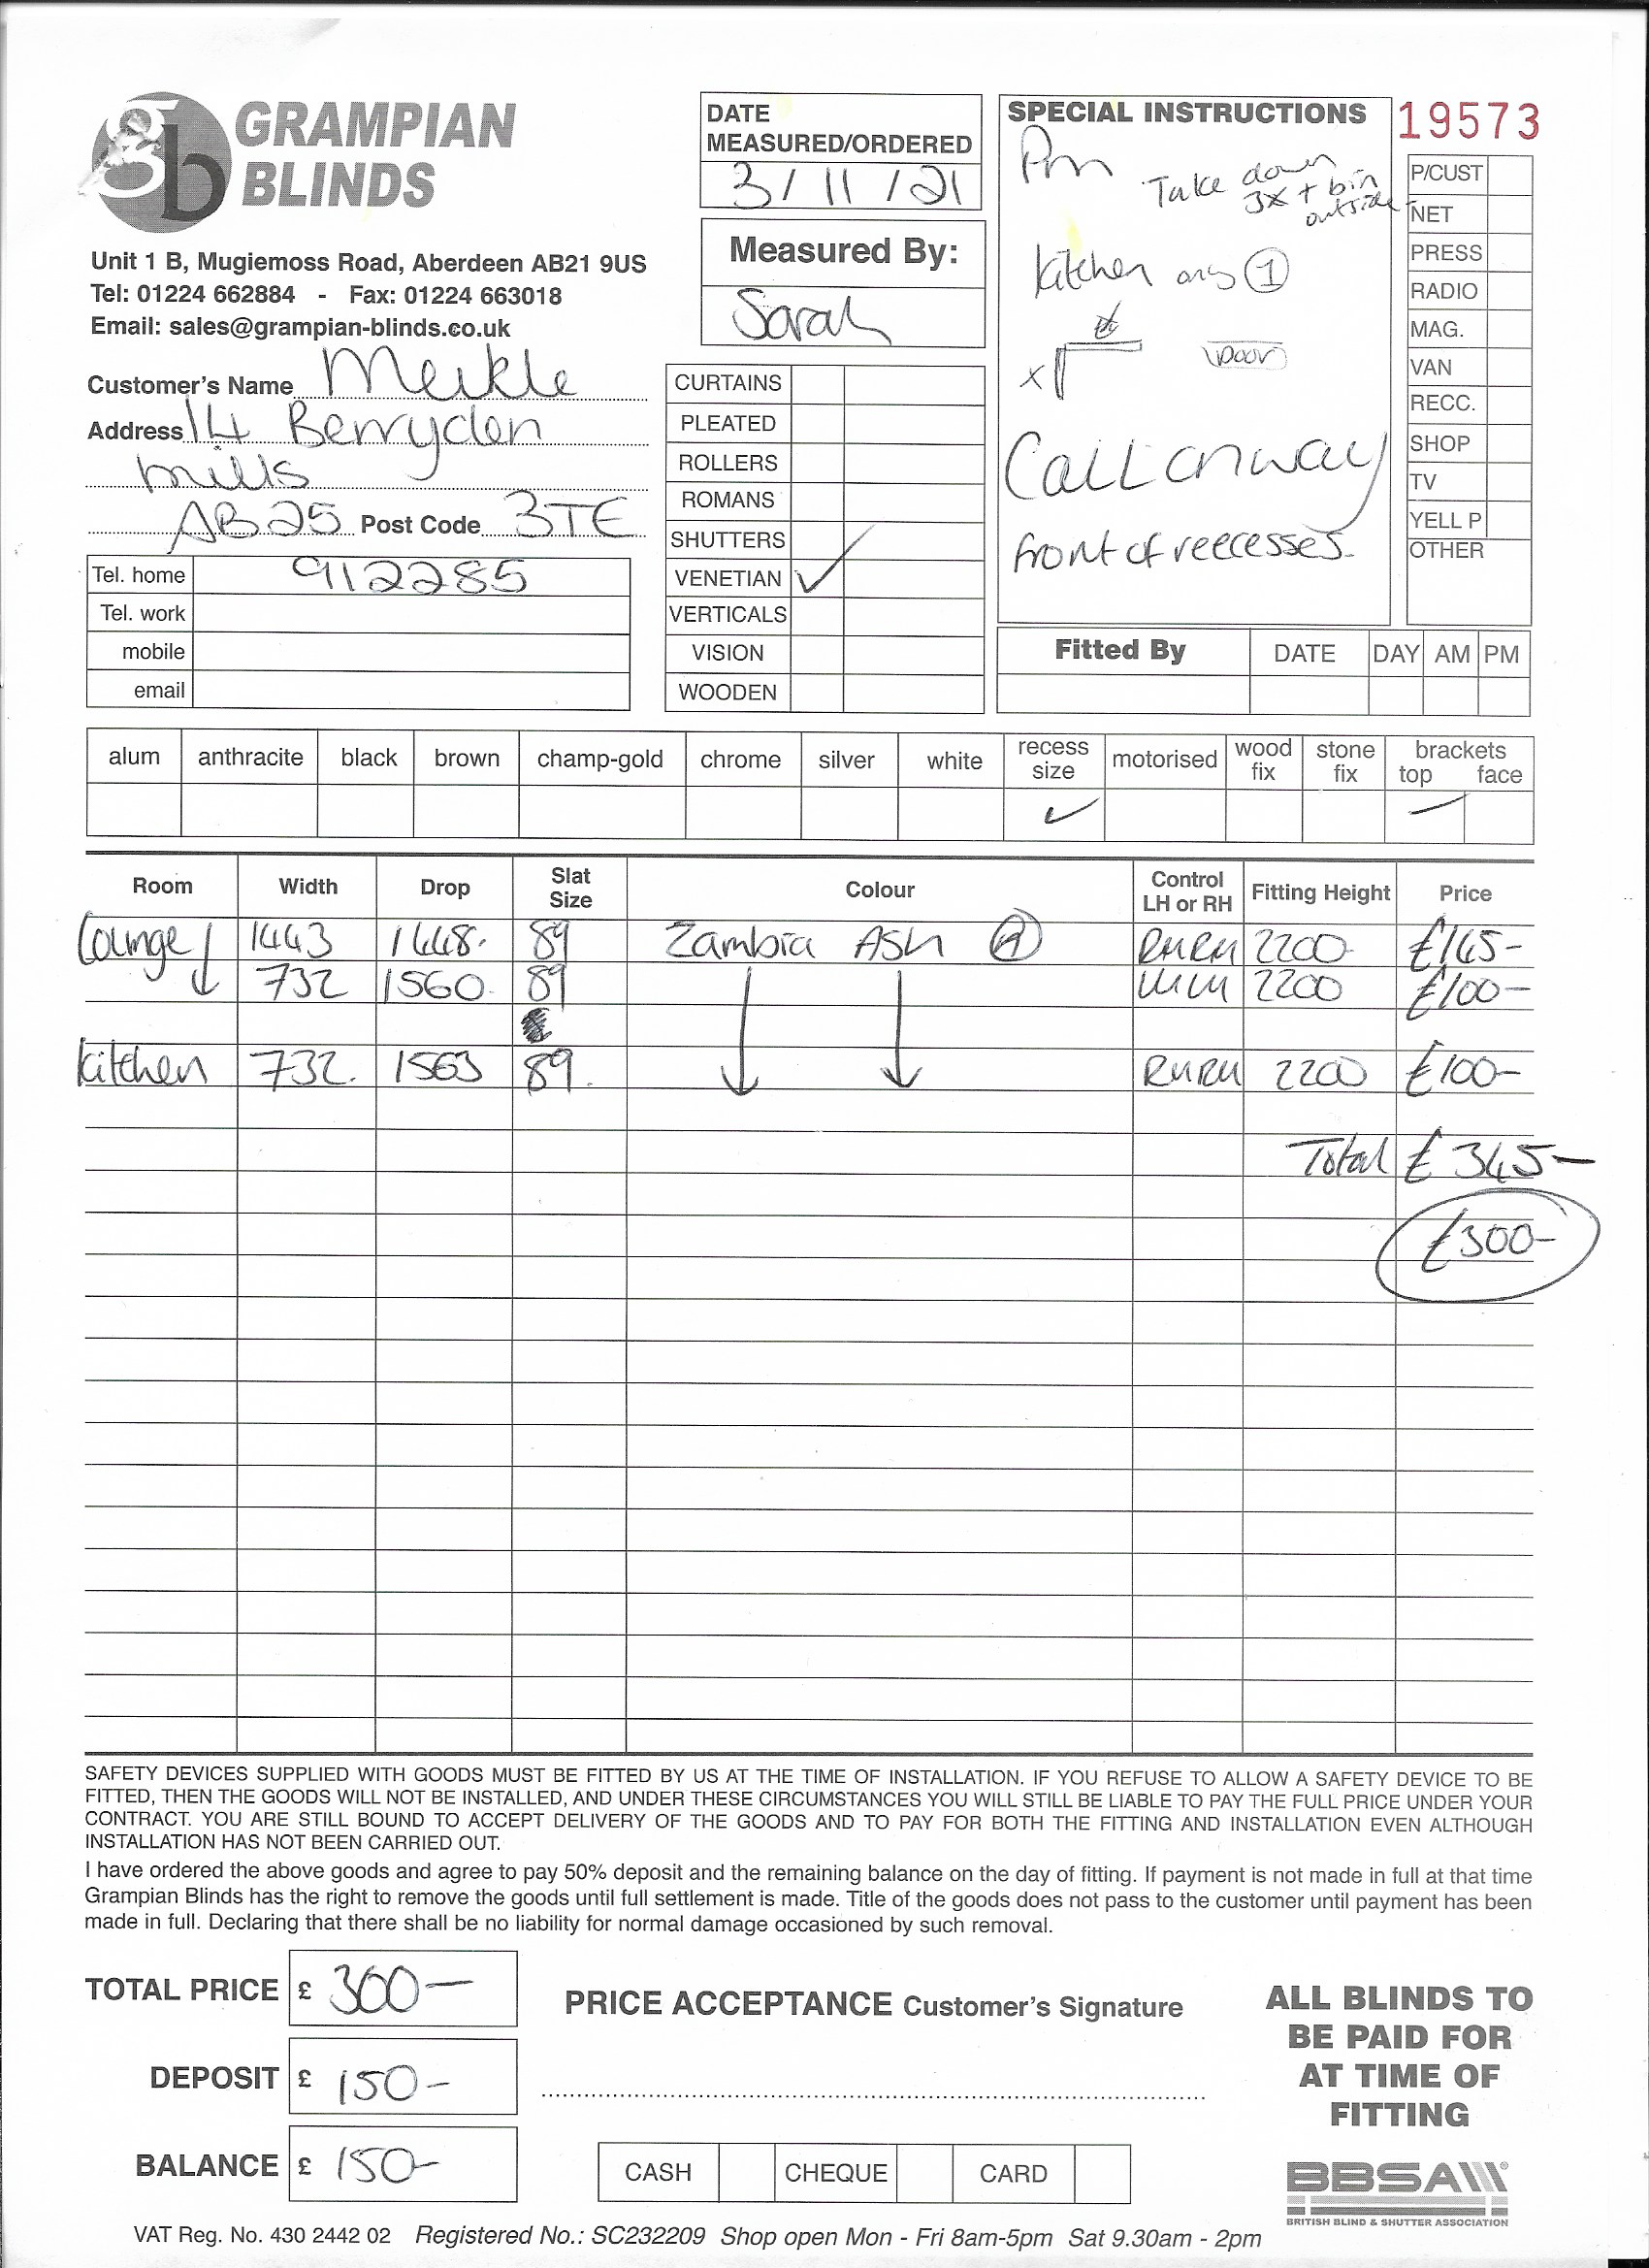 gb GRAMPIAN
BLINDS
Unit 1 B, Mugiemoss Road, Aberdeen AB21 9US
Tel: 01224 662884 - Fax: 01224 663018
Email: sales@grampian-blinds.co.uk
Customer's Name Meikle
Address 14 Berryden
Mills
AB25 Post Code 3TE
Tel. home 912285
Tel. work
mobile
email
DATE
MEASURED/ORDERED
3/11/21
Measured By:
Sarah
CURTAINS
PLEATED
ROLLERS
ROMANS
SHUTTERS
VENETIAN ✓
VERTICALS
VISION
WOODEN
SPECIAL INSTRUCTIONS
Pm
Take down
3x + bin
outside
Kitchen only 1
x
Door
Call on way
front of reecesses.
19573
P/CUST
NET
PRESS
RADIO
MAG.
VAN
RECC.
SHOP
TV
YELL P
OTHER
Fitted By DATE DAY AM PM
alum anthracite black brown champ-gold chrome silver white recess size motorised wood fix stone fix brackets top face
✓
Room Width Drop Slat Size Colour Control LH or RH Fitting Height Price
Lounge 1443 1448. 89 Zambia Ash A RHRH 2200 £145-
732 1560. 89 LHLH 2200 £100-
Kitchen 732. 1563 89. RHRH 2200 £100-
Total £345-
£300-
SAFETY DEVICES SUPPLIED WITH GOODS MUST BE FITTED BY US AT THE TIME OF INSTALLATION. IF YOU REFUSE TO ALLOW A SAFETY DEVICE TO BE
FITTED, THEN THE GOODS WILL NOT BE INSTALLED, AND UNDER THESE CIRCUMSTANCES YOU WILL STILL BE LIABLE TO PAY THE FULL PRICE UNDER YOUR
CONTRACT. YOU ARE STILL BOUND TO ACCEPT DELIVERY OF THE GOODS AND TO PAY FOR BOTH THE FITTING AND INSTALLATION EVEN ALTHOUGH
INSTALLATION HAS NOT BEEN CARRIED OUT.
I have ordered the above goods and agree to pay 50% deposit and the remaining balance on the day of fitting. If payment is not made in full at that time
Grampian Blinds has the right to remove the goods until full settlement is made. Title of the goods does not pass to the customer until payment has been
made in full. Declaring that there shall be no liability for normal damage occasioned by such removal.
TOTAL PRICE £ 300-
DEPOSIT £ 150-
BALANCE £ 150-
PRICE ACCEPTANCE Customer's Signature
CASH CHEQUE CARD
ALL BLINDS TO
BE PAID FOR
AT TIME OF
FITTING
BBSA
BRITISH BLIND & SHUTTER ASSOCIATION
VAT Reg. No. 430 2442 02 Registered No.: SC232209 Shop open Mon - Fri 8am-5pm Sat 9.30am - 2pm